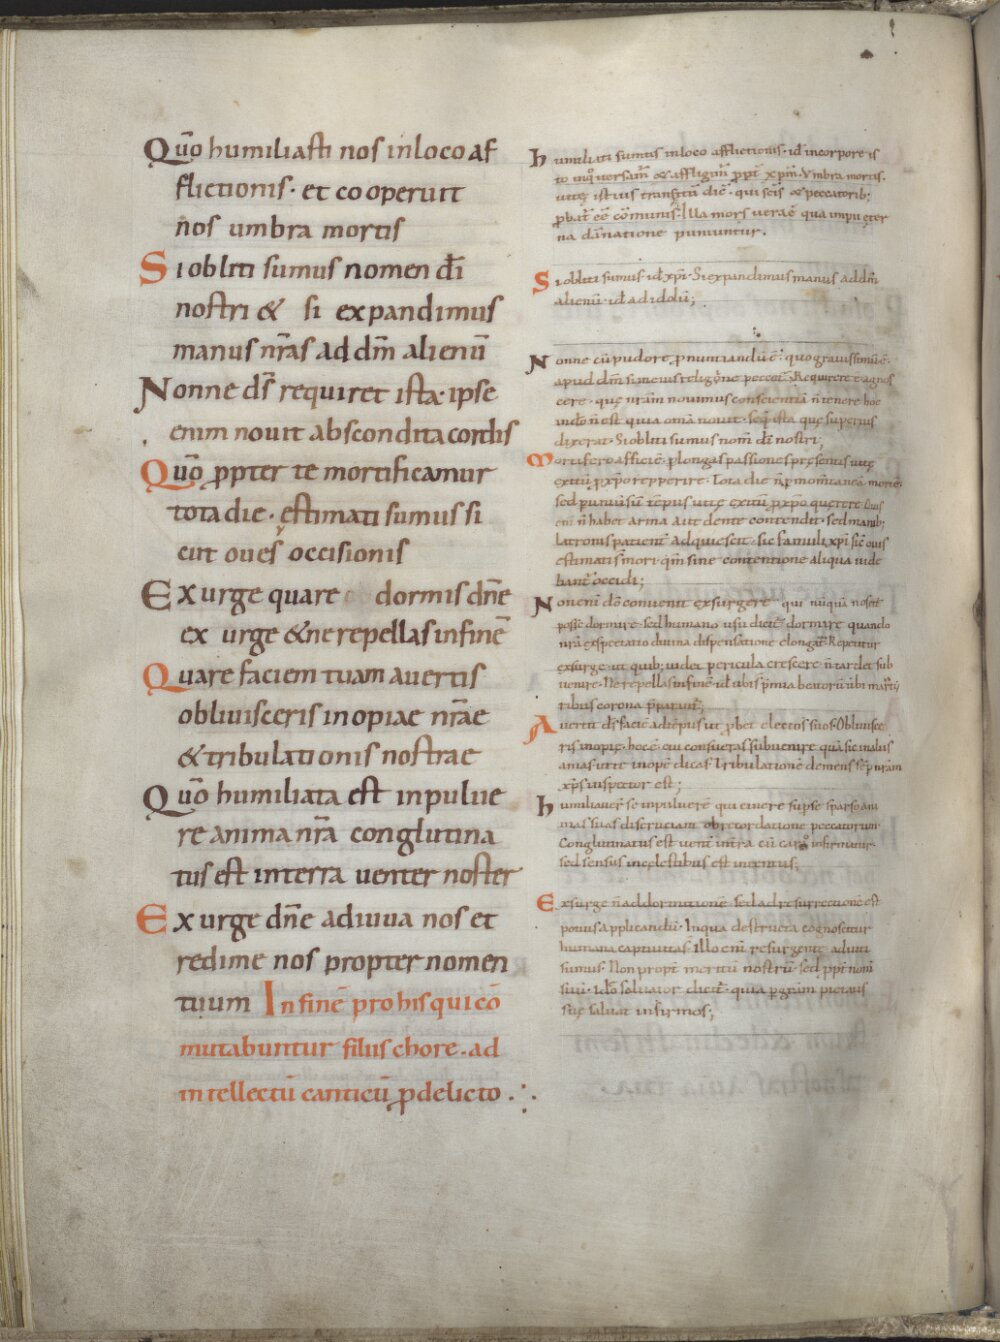 Quō humiliasti nos inloco af
flictionis· et cooperuit
nos umbra mortis
Si obliti sumus nomen dī
nostri & si expandimus
manus nr̄as ad dm̄ alienū
Nonne ds̄ requiret ista· ipse
enim nouit abscondita cordis
Quō ꝓpter te mortificamur
tota die· ęstimati sumus si
cut oues occisionis
Exurge quare dormis dn̄e
exurge & ne repellas infinē
Quare faciem tuam auertis
obliuisceris inopiae nr̄ae
& tribulationis nostrae
Quō humiliata est inpulue
re anima nr̄a conglutina
tus est interra uenter noster
Exurge dn̄e adiuua nos et
redime nos propter nomen
tuum In finē pro his qui cō
mutabuntur filiis chore· ad
intellectū canticū ꝓ delicto
humiliati sumus inloco afflictionis· id incorpore is
to
uitę istius transitū diē· qui scīs & peccatorib;
ꝓbat̄ eē cōmunis· Illa mors uerae qua impii ęter
na dānatione puniuntur.
Si obliti sumus id xp̄i· Si expandimus manus ad dm̄
alienū· id ad idolū;
Nonne cū pudore ꝓnuntiandū ē· quo grauissimū ē·
apud dm̄ siin eius religione peccet̄· Requirere ē agnos
cere· quę nr̄am nouimus conscientiā n̄ tenere hoc
indō n̄ est quia omīa nouit· seq̄ ista quę superius
dixerat· Si obliti sumus nom̄ dī nostri;
Mortifero afficiē· ꝓ longas passiones pręsentis uitę
exitū ꝓ xp̄o repperire· Tota die n̄ ꝓ momentanea morte
sed ꝑ uniūsū tēpus uitę exitū ꝓ xp̄o querere Ouis
eni n̄ habet arma aut dente contendit· sed manib;
latronis patient̄ adquiescit· sic famuli xp̄i sic̄ ouis
estimati sn̄ mori· qm̄ sine contentione aliqua uide
bant̄ occidi;
Non eni dō conuenit exsurgere qui nūquā nosci&
posse dormire· sed humano usu dicit̄ dormire quando
nr̄a exspectatio diuina dispensatione elongat̄ Repetitur
exsurge· ut quib; uidet pericula crescere n̄ tardet sub
uenire· Ne repellas infinē· id ubi sp̄mia beatorū ubi marty
ribus corona p̄parant̄;
Auertit ds̄ faciē ad tēpus ut ꝓbet electos suos· Obliuisce
ris inopię· hoc ē· cui consueras subuenire quā sic malus
amas uite inopē dicas Tribulationē demens sēp nr̄am
xp̄s inspector est;
humiliauer̄ se inpuluerē qui cinere sup se sparso ani
mas suas discruciant ob recordatione peccatorum·
Conglutinatus est uent̄ intra cū caro infirmatur·
sed sensus incęlestibus est intentus;
Exsurge n̄ ad dormitionē· sed ad resurrectionē est
potius applicandū· Inqua destructa cognoscitur
humana captiuitas· Illo eni resurgente adiuti
sumus· Non propt̄ meritū nostrū· sed ppt̄ nom̄
suū· Idō saluator dicit̄· quia ꝑ gr̄am pietatis
suę saluat infirmos;